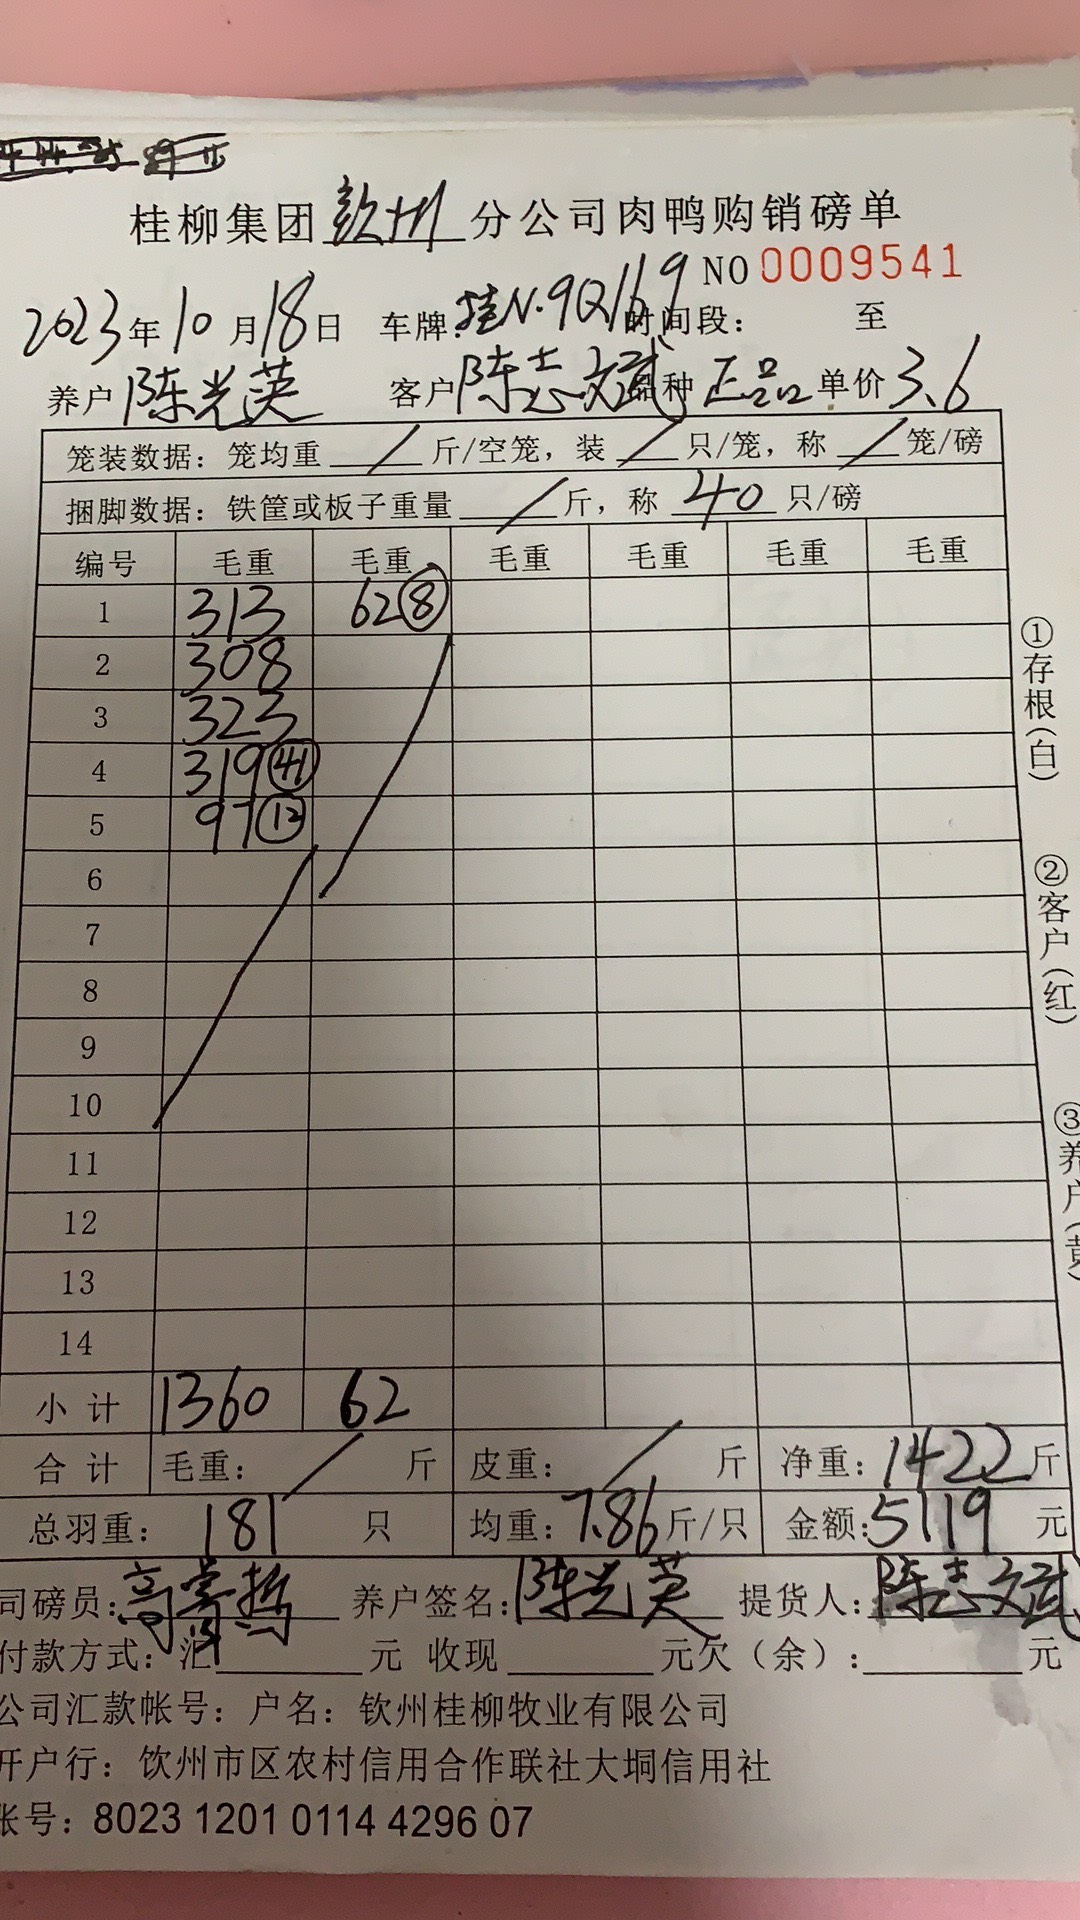 桂柳集团钦州分公司肉鸭购销磅单
NO 0009541
2023年10月18日 车牌:桂N·9Q169 时间段: 至
养户 陈光英 客户 陈志文武 品种 正品 单价 3.6
笼装数据: 笼均重 / 斤/空笼, 装 / 只/笼, 称 / 笼/磅
捆脚数据: 铁筐或板子重量 / 斤, 称 40 只/磅
编号 毛重 毛重 毛重 毛重 毛重 毛重
1 313 62⑧
2 308
3 323
4 319㊶
5 97⑫
6
7
8
9
10
11
12
13
14
小计 1360 62
合计 毛重: / 斤 皮重: / 斤 净重: 1422 斤
总羽重: 181 只 均重: 7.86 斤/只 金额: 5119 元
司磅员: 养户签名: 陈光英 提货人: 陈志文武
付款方式: 汇 元 收现 元欠(余): 元
公司汇款帐号: 户名: 钦州桂柳牧业有限公司
开户行: 饮州市区农村信用合作联社大垌信用社
帐号: 8023 1201 0114 4296 07
①存根(白)
②客户(红)
③养户(黄)